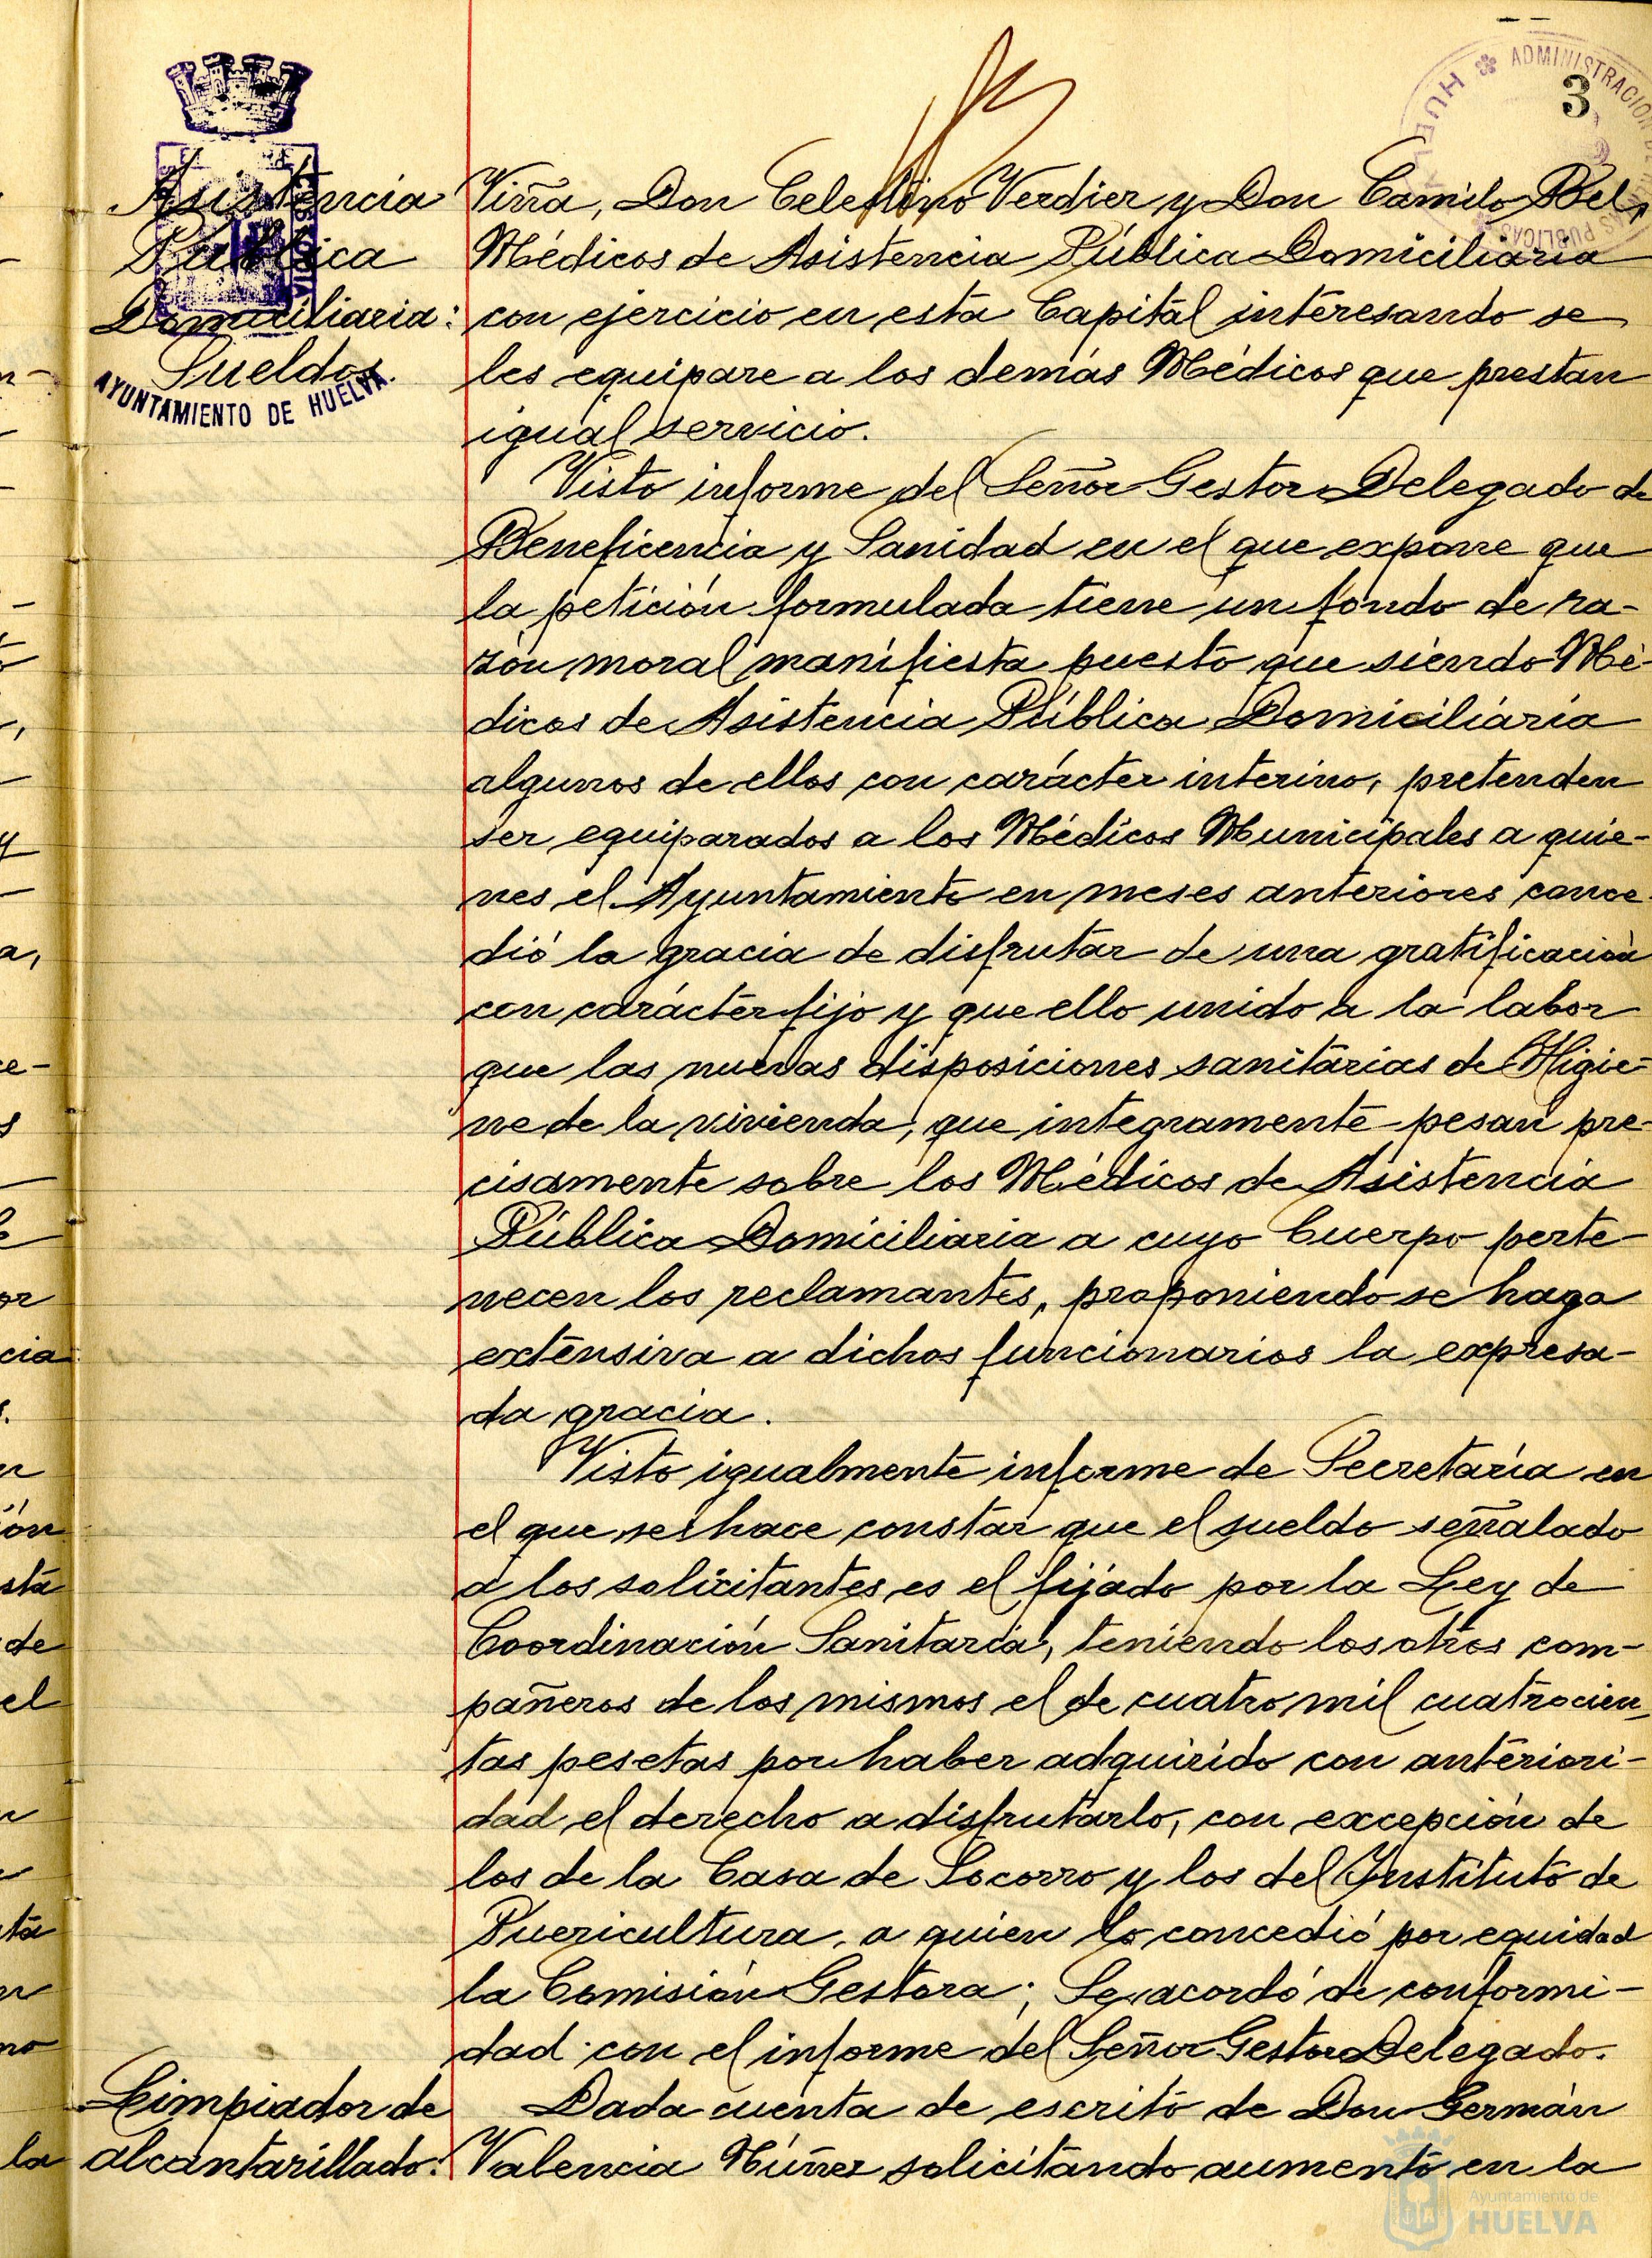 3
ADMINISTRACION
HUELVA
PUBLICAS
Asistencia
Pública
Domiciliaria:
Sueldos.
AYUNTAMIENTO DE HUELVA.
Viña, Don Celestino Verdier y Don Camilo Bel,
Médicos de Asistencia Pública Domiciliaria
con ejercicio en esta Capital interesando se
les equipare a los demás Médicos que prestan
igual servicio.
Visto informe del Señor Gestor Delegado de
Beneficencia y Sanidad en el que expone que
la petición formulada tiene un fondo de ra-
zón moral manifiesta puesto que siendo Mé-
dicos de Asistencia Pública Domiciliaria
algunos de ellos con carácter interino, pretenden
ser equiparados a los Médicos Municipales a quie-
nes el Ayuntamiento en meses anteriores conce-
dió la gracia de disfrutar de una gratificación
con carácter fijo y que ello unido a la labor
que las nuevas disposiciones sanitarias de Higie-
ne de la vivienda, que integramente pesan pre-
cisamente sobre los Médicos de Asistencia
Pública Domiciliaria a cuyo Cuerpo perte-
necen los reclamantes, proponiendo se haga
extensiva a dichos funcionarios la expresa-
da gracia.
Visto igualmente informe de Secretaría en
el que se hace constar que el sueldo señalado
a los solicitantes es el fijado por la Ley de
Coordinación Sanitaria, teniendo los otros com-
pañeros de los mismos el de cuatro mil cuatrocien-
tas pesetas por haber adquirido con anteriori-
dad el derecho a disfrutarlo, con excepción de
los de la Casa de Socorro y los del Instituto de
Puericultura, a quien lo concedió por equidad
la Comisión Gestora; Se acordó de conformi-
dad con el informe del Señor Gestor Delegado.
Limpiador de
alcantarillado:
Dada cuenta de escrito de Don Germán
Valencia Núñez solicitando aumento en la
Ayuntamiento de
HUELVA